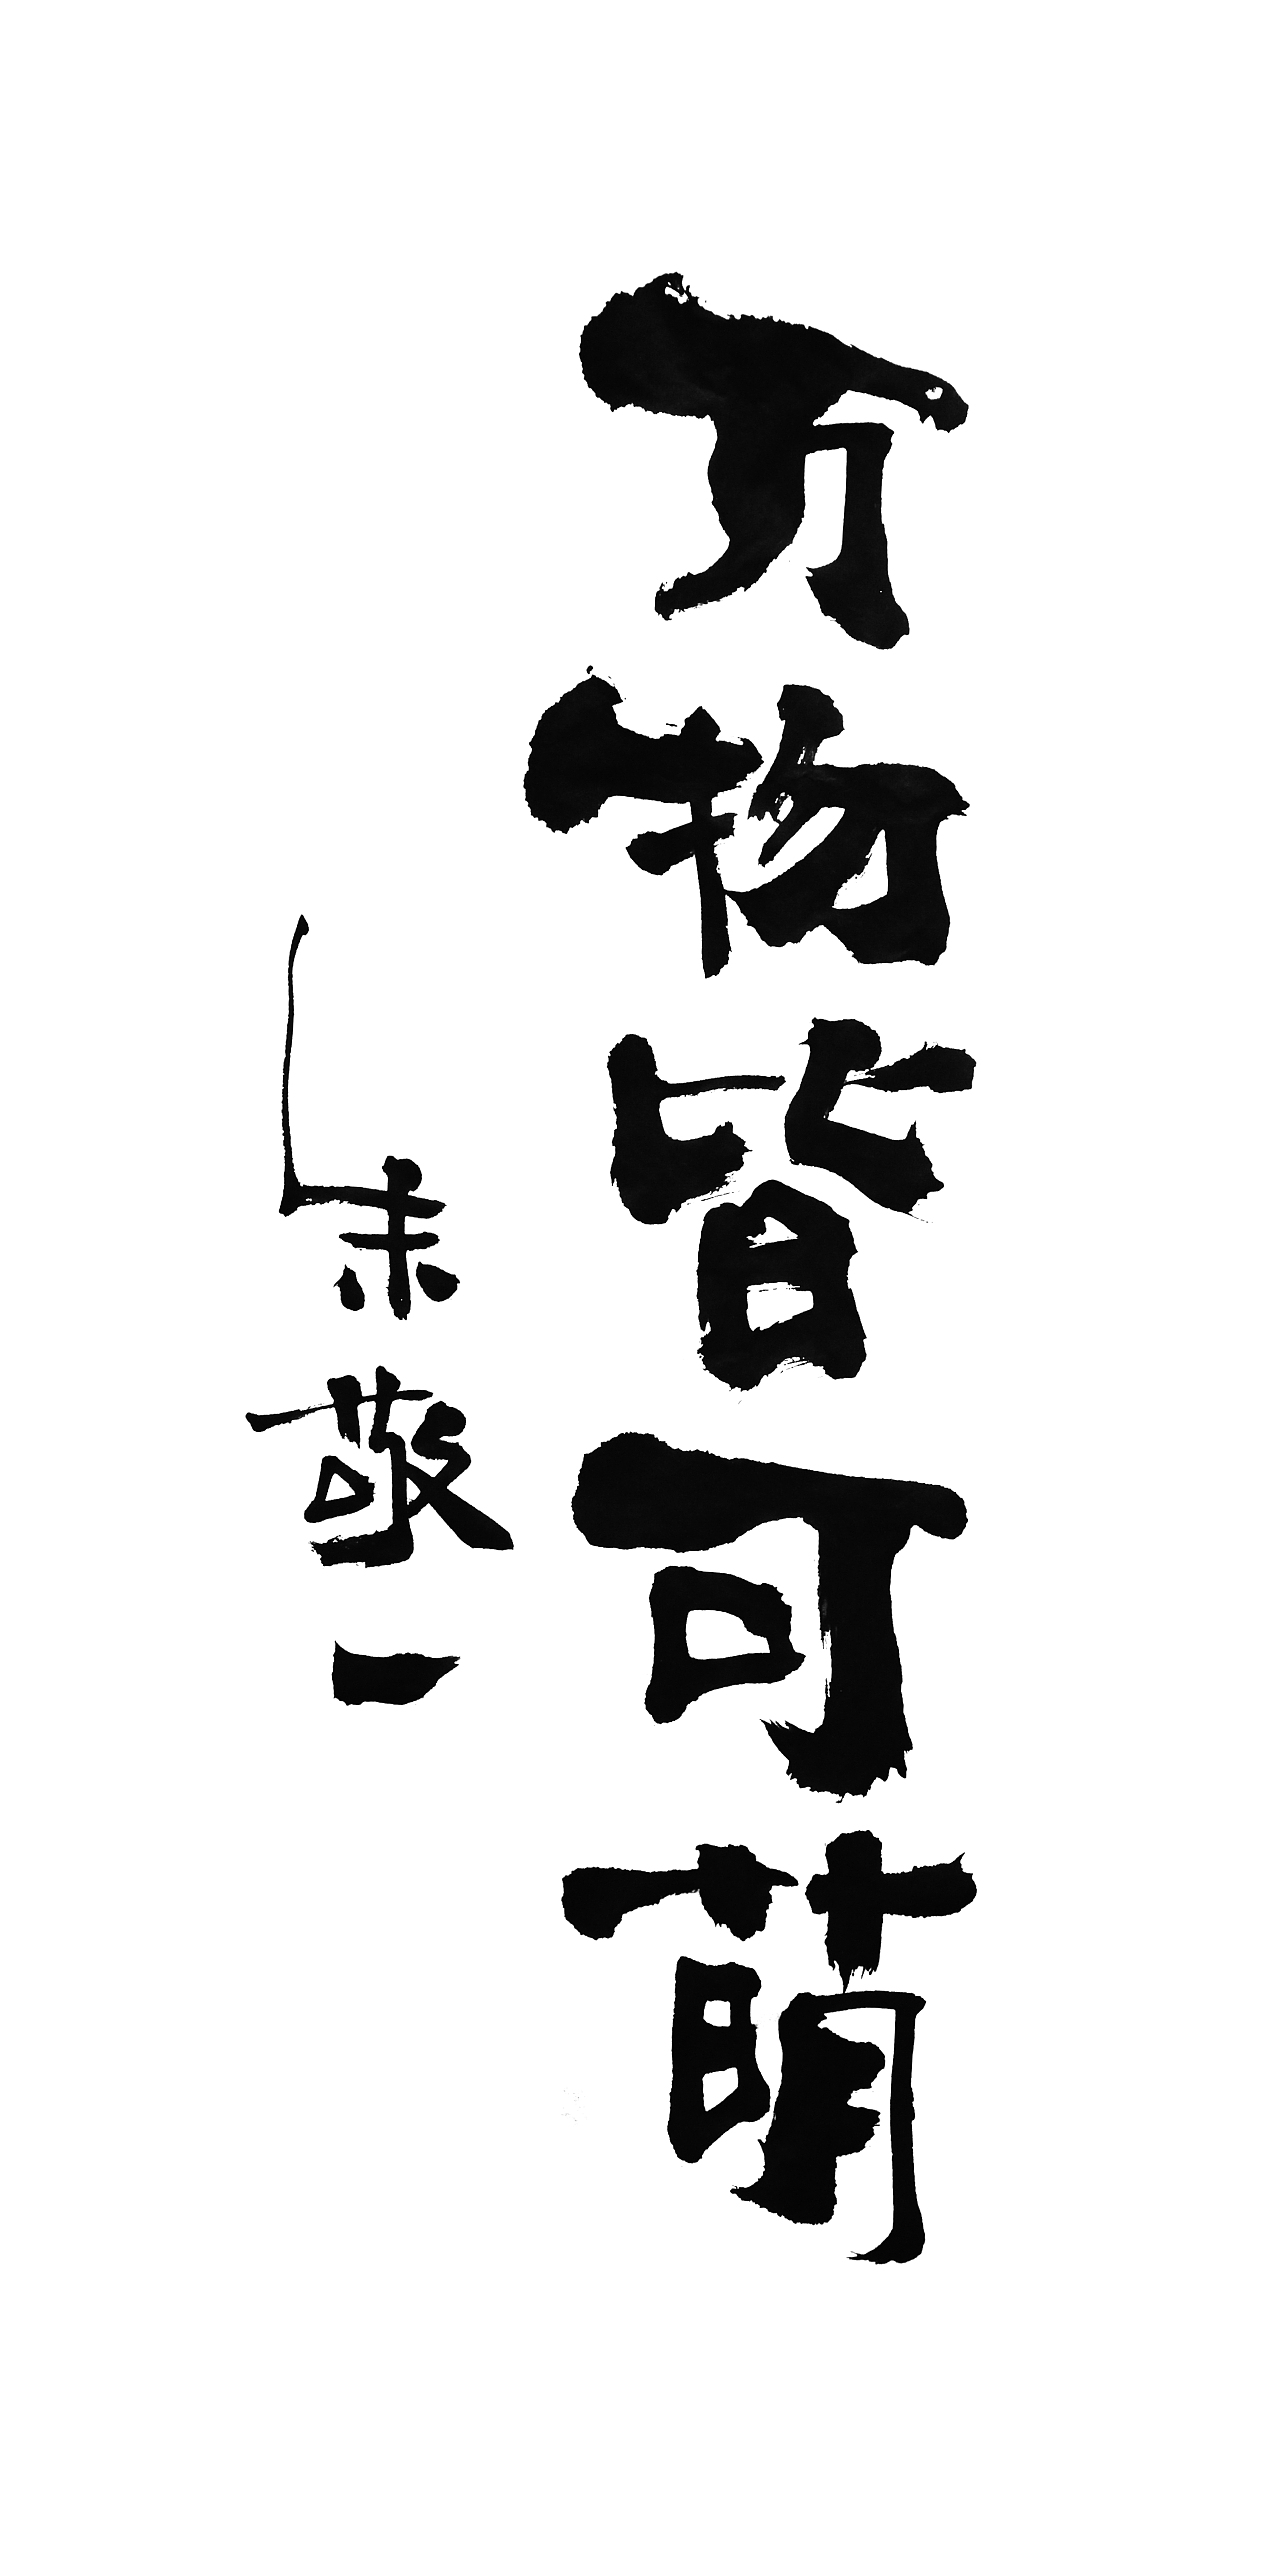 万物皆可萌
朱敬一